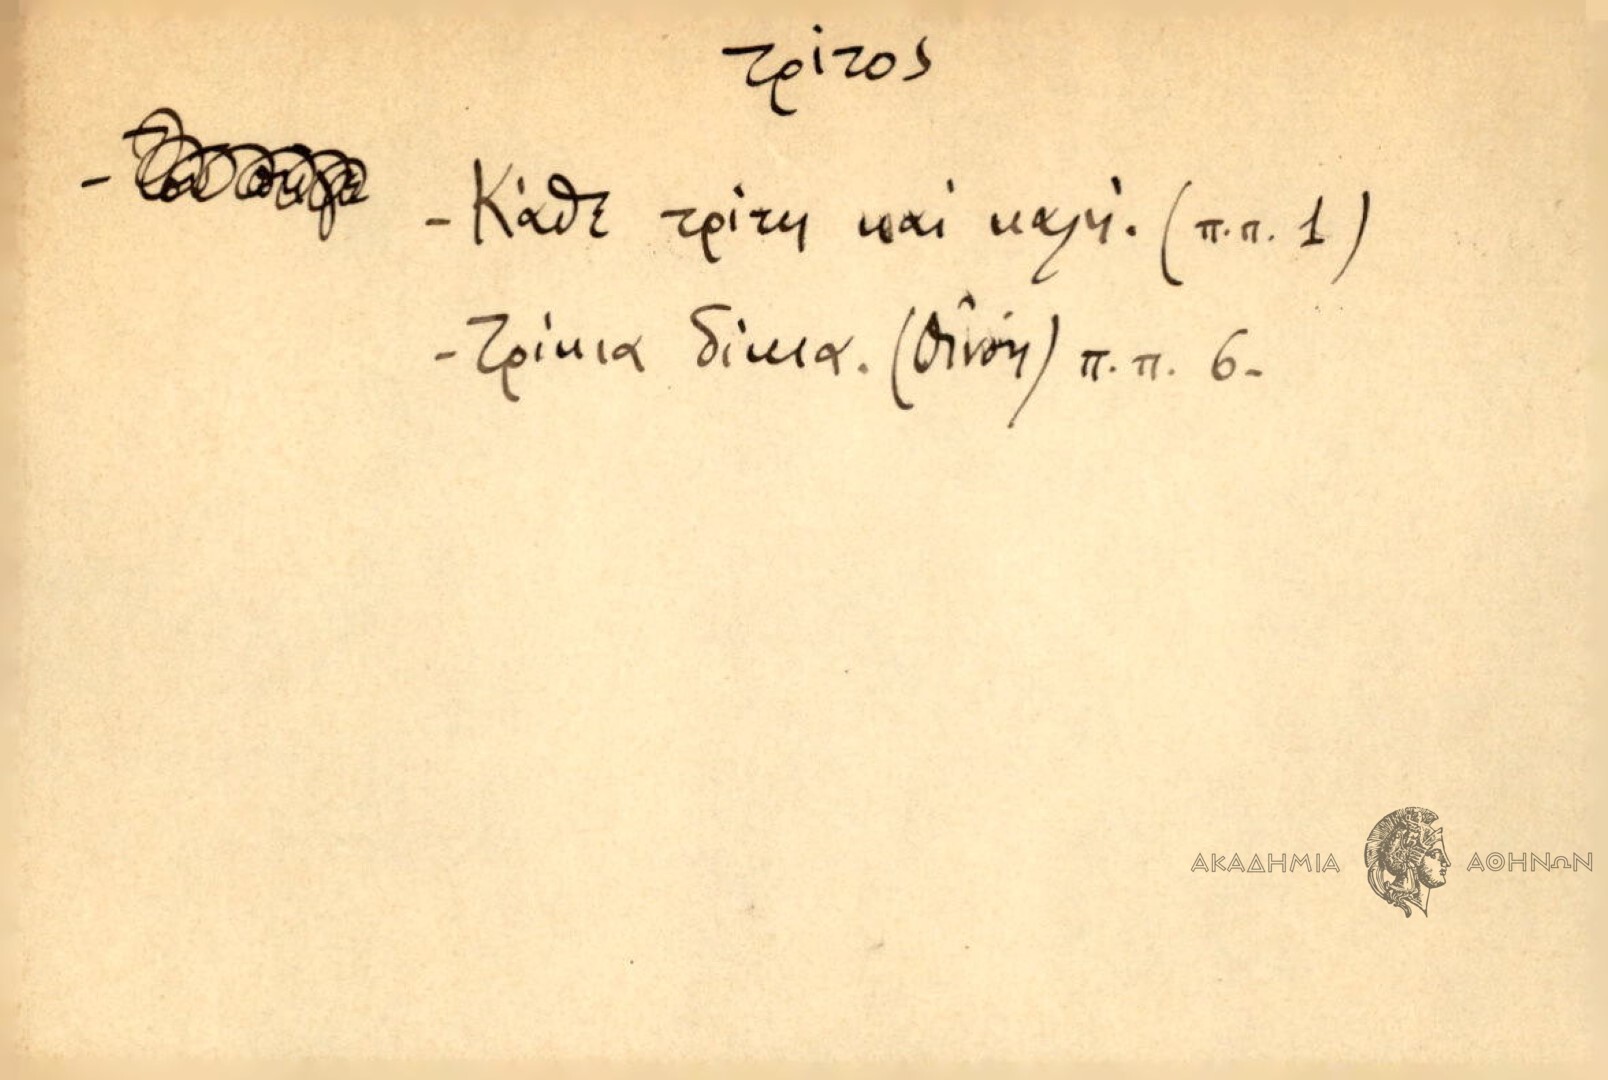 τρίτος
- Κάθε τρίτη καί καλή. (π.π. 1)
- Τρίκια δίκια. (Θῖνόη) π.π. 6-
ΑΚΑΔΗΜΙΑ ΑΘΗΝΩΝ